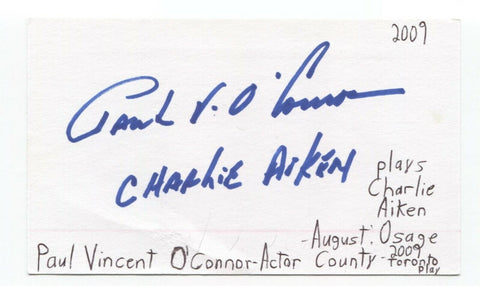 2009
Paul V. O'Connor
CHARLIE AIKEN
plays
Charlie
Aiken
-August: Osage
Paul Vincent O'Connor-Actor County-2009
Toronto
play